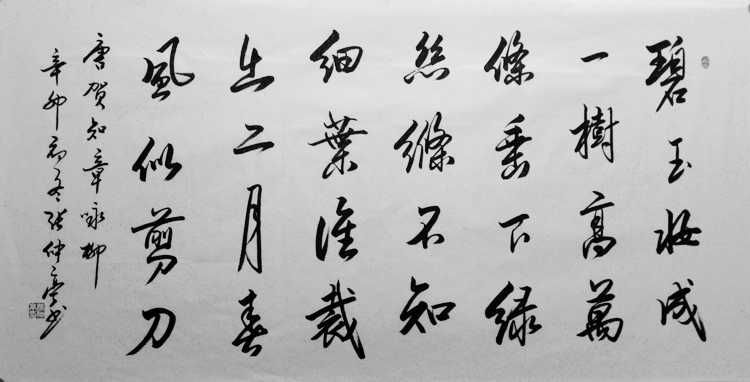 碧玉妝成
一樹高萬
條垂下綠
絲縧不知
細葉誰裁
出二月春
風似剪刀
唐賀知章咏柳
辛卯初冬張仲亭書